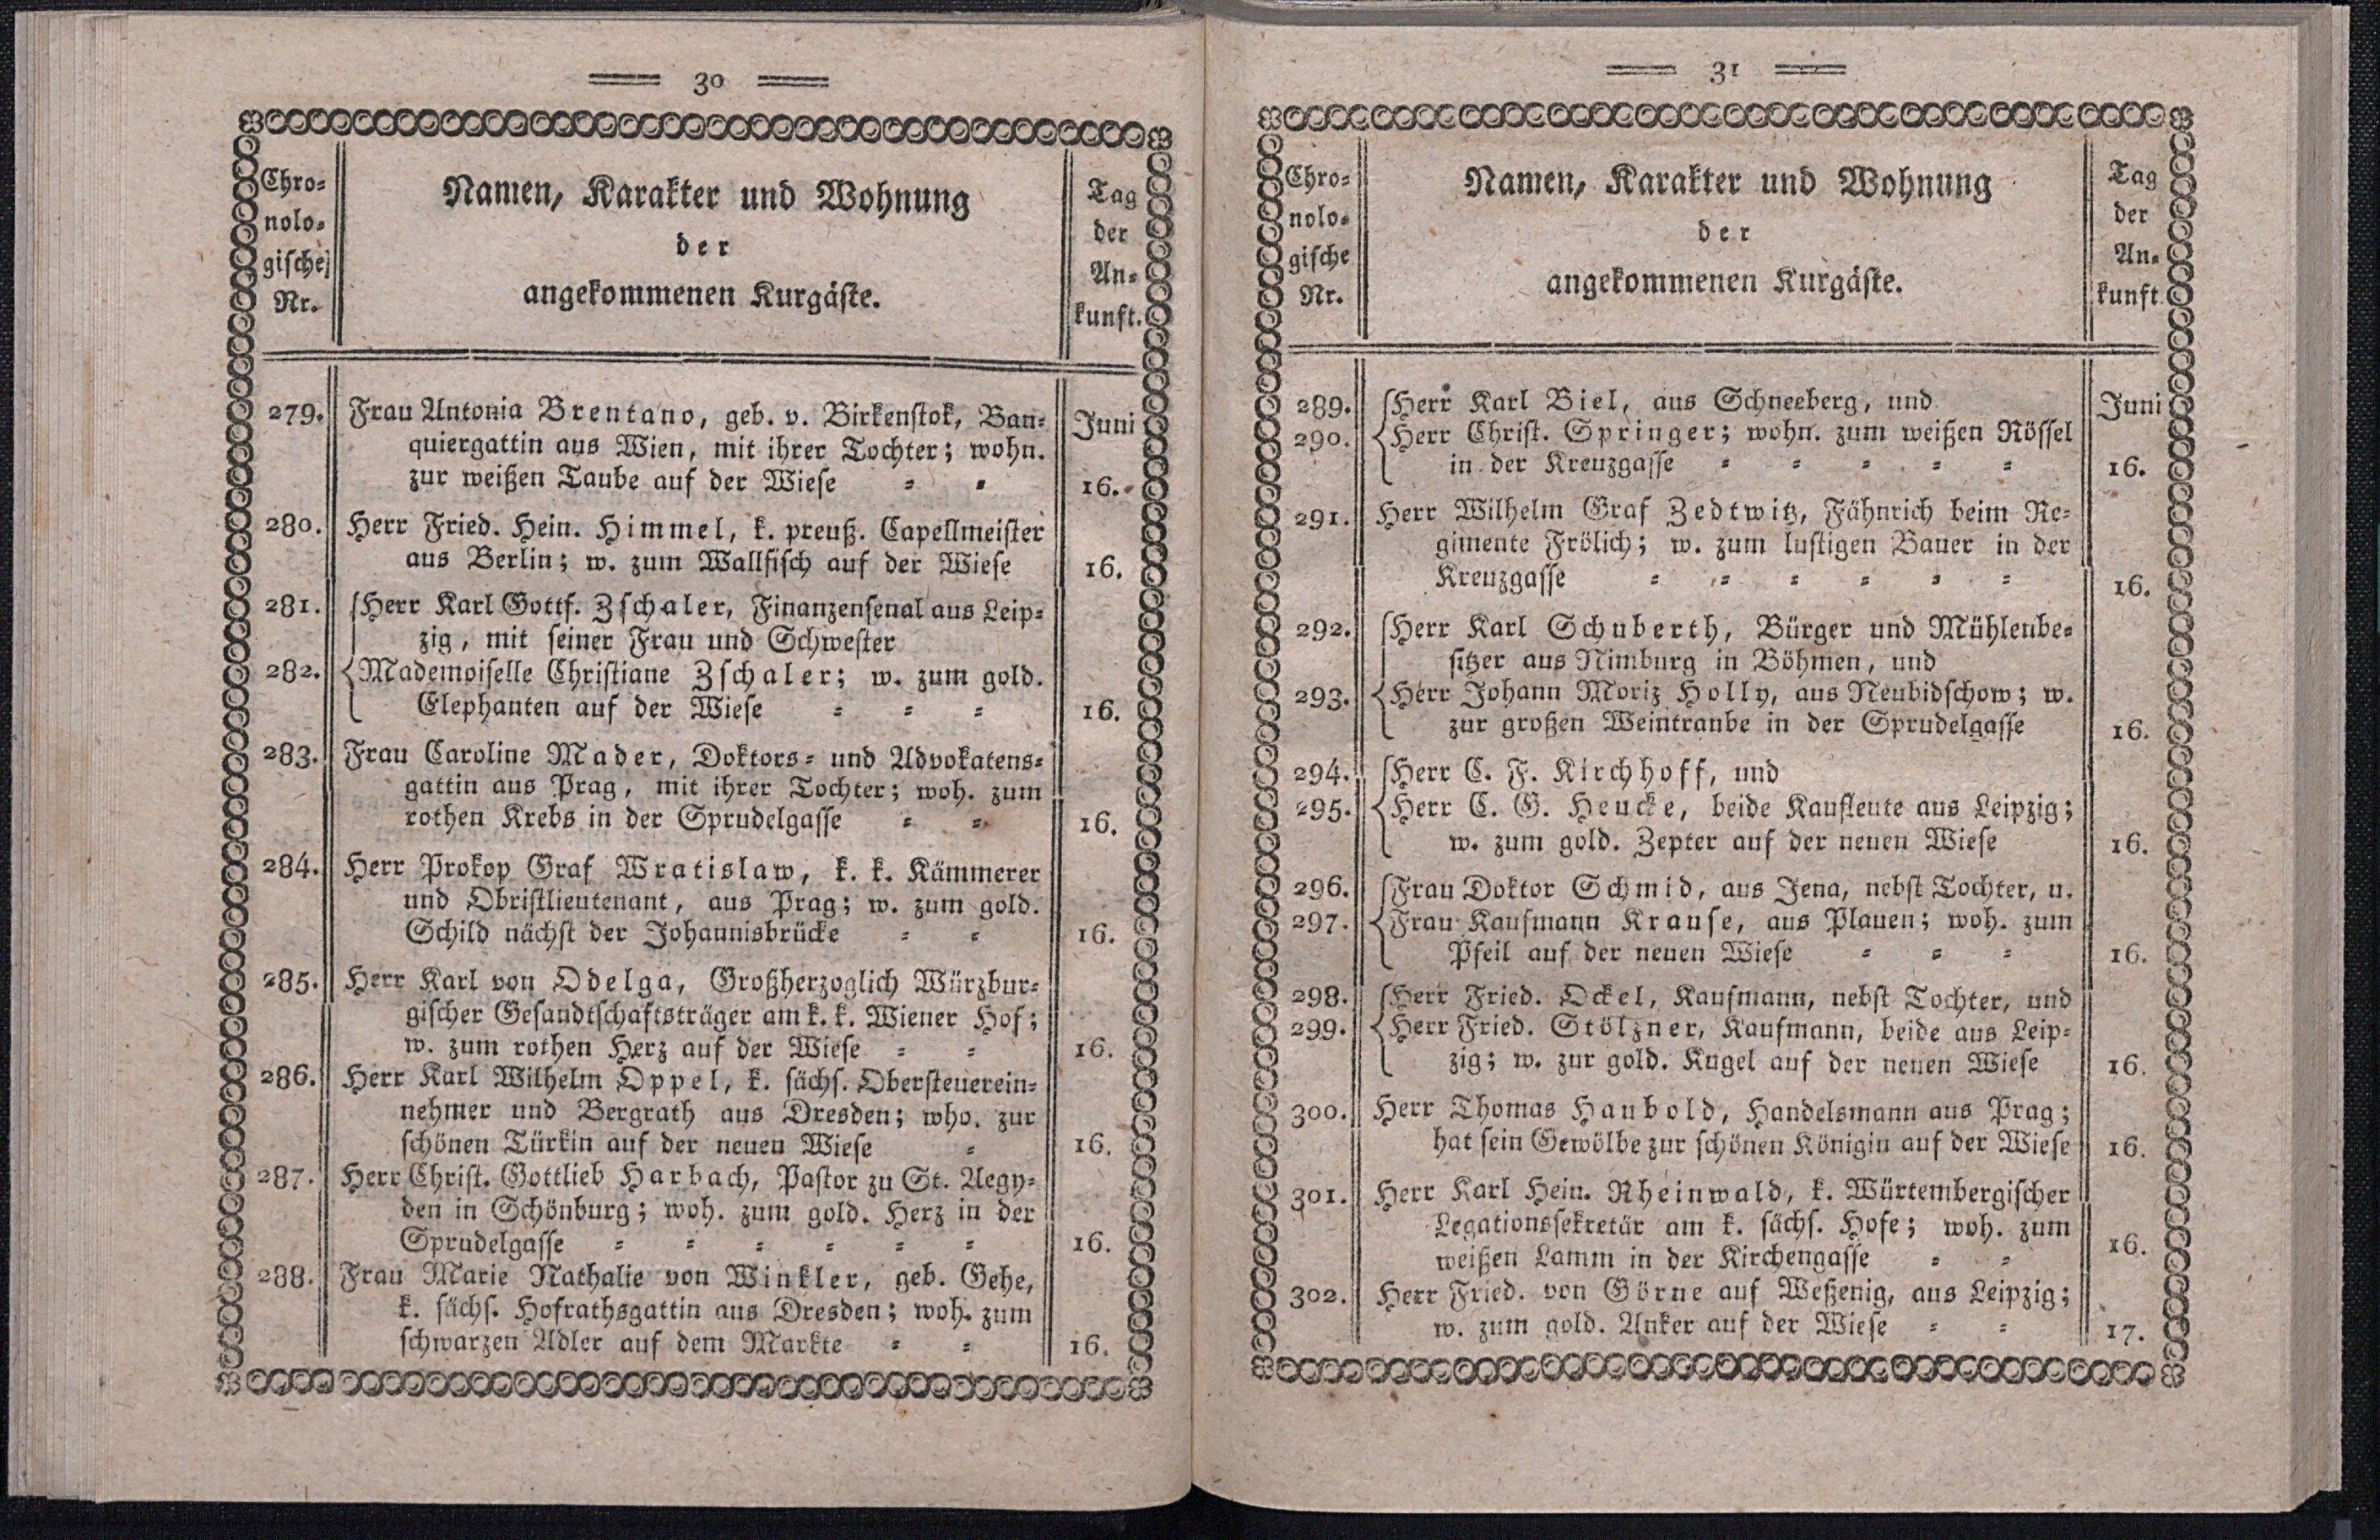 30
Chro=
nolo=
gische
Nr.
Namen, Karakter und Wohnung
der
angekommenen Kurgäste.
Tag
der
An=
kunft.
279. Frau Antonia Brentano, geb. v. Birkenstok, Ban= Juni
quiergattin aus Wien, mit ihrer Tochter; wohn.
zur weißen Taube auf der Wiese = = 16.
280. Herr Fried. Hein. Himmel, k. preuß. Capellmeister
aus Berlin; w. zum Wallfisch auf der Wiese 16.
281. Herr Karl Gottf. Zschaler, Finanzensenal aus Leip=
zig, mit seiner Frau und Schwester
282. Mademoiselle Christiane Zschaler; w. zum gold.
Elephanten auf der Wiese = = = 16.
283. Frau Caroline Mader, Doktors= und Advokatens=
gattin aus Prag, mit ihrer Tochter; woh. zum
rothen Krebs in der Sprudelgasse = = 16.
284. Herr Prokop Graf Wratislaw, k. k. Kämmerer
und Obristlieutenant, aus Prag; w. zum gold.
Schild nächst der Johannisbrücke = = 16.
285. Herr Karl von Odelga, Großherzoglich Würzbur=
gischer Gesandtschaftsträger am k. k. Wiener Hof;
w. zum rothen Herz auf der Wiese = = 16.
286. Herr Karl Wilhelm Oppel, k. sächs. Obersteuerein=
nehmer und Bergrath aus Dresden; who. zur
schönen Türkin auf der neuen Wiese = 16.
287. Herr Christ. Gottlieb Harbach, Pastor zu St. Aegy=
den in Schönburg; woh. zum gold. Herz in der
Sprudelgasse = = = = = = 16.
288. Frau Marie Nathalie von Winkler, geb. Gehe,
k. sächs. Hofrathsgattin aus Dresden; woh. zum
schwarzen Adler auf dem Markte = = 16.
31
Chro=
nolo=
gische
Nr.
Namen, Karakter und Wohnung
der
angekommenen Kurgäste.
Tag
der
An=
kunft
289. Herr Karl Biel, aus Schneeberg, und Juni
290. Herr Christ. Springer; wohn. zum weißen Rössel
in der Kreuzgasse = = = = = 16.
291. Herr Wilhelm Graf Zedtwitz, Fähnrich beim Re=
gimente Frölich; w. zum lustigen Bauer in der
Kreuzgasse = = = = = = 16.
292. Herr Karl Schuberth, Bürger und Mühlenbe=
sitzer aus Nimburg in Böhmen, und
293. Herr Johann Moriz Holly, aus Neubidschow; w.
zur großen Weintraube in der Sprudelgasse 16.
294. Herr C. F. Kirchhoff, und
295. Herr C. G. Heucke, beide Kaufleute aus Leipzig;
w. zum gold. Zepter auf der neuen Wiese 16.
296. Frau Doktor Schmid, aus Jena, nebst Tochter, u.
297. Frau Kaufmann Krause, aus Plauen; woh. zum
Pfeil auf der neuen Wiese = = = 16.
298. Herr Fried. Ockel, Kaufmann, nebst Tochter, und
299. Herr Fried. Stölzner, Kaufmann, beide aus Leip=
zig; w. zur gold. Kugel auf der neuen Wiese 16.
300. Herr Thomas Haubold, Handelsmann aus Prag;
hat sein Gewölbe zur schönen Königin auf der Wiese 16.
301. Herr Karl Hein. Rheinwald, k. Würtembergischer
Legationssekretär am k. sächs. Hofe; woh. zum
weißen Lamm in der Kirchengasse = = 16.
302. Herr Fried. von Görne auf Weßenig, aus Leipzig;
w. zum gold. Anker auf der Wiese = = 17.